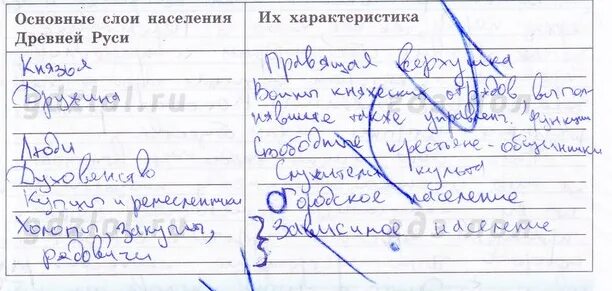 Основные слои населения Древней Руси | Их характеристика
Князья | Правящая верхушка
Дружина | Воины княжеских отрядов, выпол-
нявшие также управлен. функции
Люди | Свободные крестьяне-общинники
Духовенство | Служители культа
Купцы и ремесленники | Городское население
Холопы, закупы, | Зависимое население
рядовичи